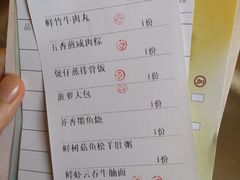 品
鲜竹牛肉丸
1份
五香煎咸肉粽
1份
煲仔蒸排骨饭
1份
菠萝大包
1份
芥香墨鱼烧
1份
鲜树菇鱼松羊肚粥
1份
鲜虾云吞牛腩面